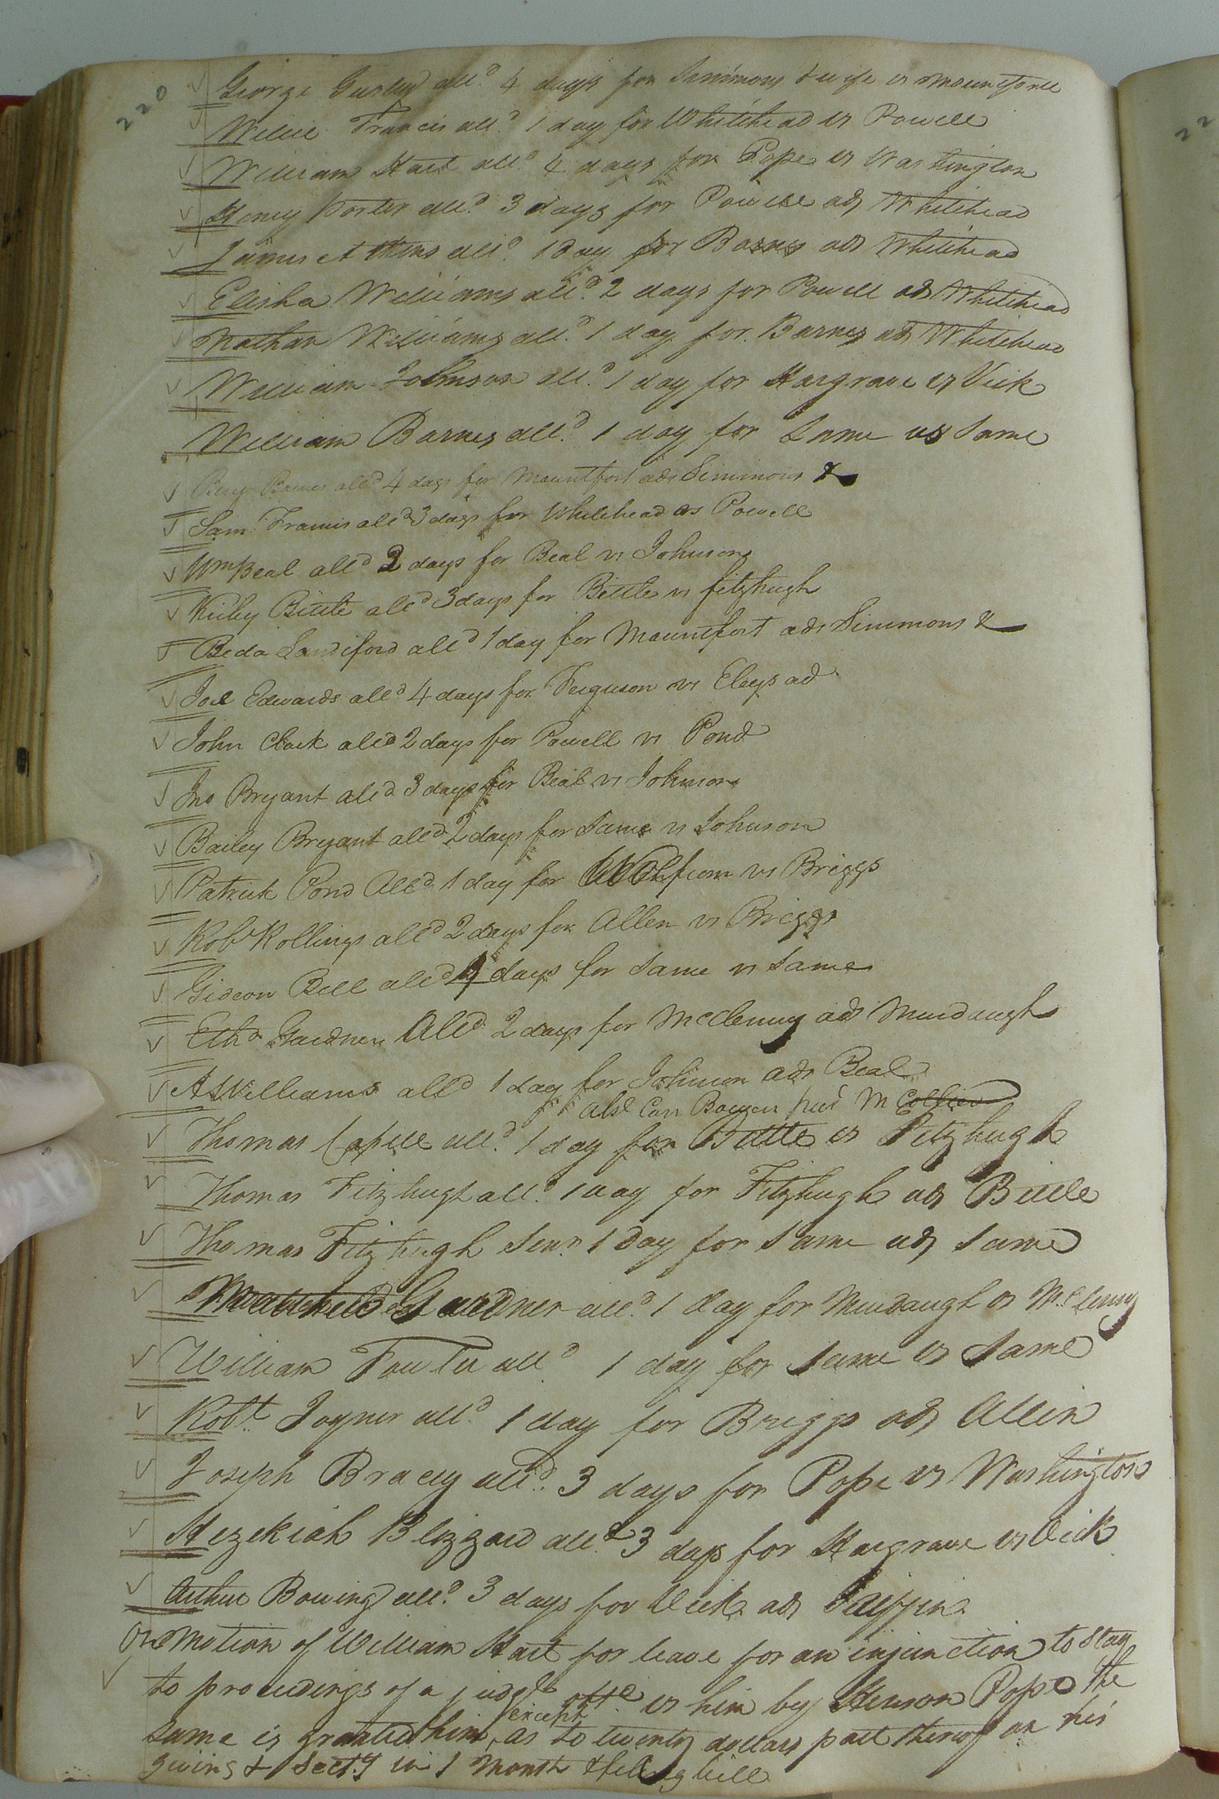 220
George Gurley alld. 4 days for Simmons & wife vs Mountfort
Willie Francis alld. 1 day for Whitehead vs Powell
William Hart alld. 4 days for Pope vs Washington
Henry Porter alld. 3 days for Powell ads Whitehead
James Atkins alld. 1 day for Barnes ads Whitehead
Elisha Williams alld. 2 days for Powell ads Whitehead
Nathan Williams alld. 1 day for Barnes ads Whitehead
William Johnson alld. 1 day for Hargrave vs Vick
William Barnes alld. 1 day for Same vs Same
Benj Barnes alld 4 days for Mountfort ads Simmons &
Saml Francis alld 3 days for Whitehead vs Powell
Wm Beal alld 2 days for Beal vs Johnson
Kirby Bittle alld 3 days for Bittle vs fitzhugh
Beda Landiford alld 1 day for Mountfort ads Simmons &
Joel Edwards alld 4 days for Ferguson vs Eleys ad
John Clark alld 2 days for Powell vs Pond
Jno Bryant alld 3 days for Beal vs Johnson
Bailey Bryant alld 2 days for Same vs Johnson
Patrick Pond Alld. 1 day for vs Briggs
Robt Rollings alld 2 days for Allen vs Briggs
Gideon Bell alld 4 days for Same vs Same
Ethd Gardner Alld 2 days for McClenny ads Murdaugh
A Williams alld 1 day for Johnson ads Beal
Absl Cari Bowen M Collier
Thomas Capell alld. 1 day for Bittle vs Fitzhugh
Thomas Fitzhugh alld. 1 day for Fitzhugh ads Bittle
Thomas Fitzhugh Senr. 1 day for Same ads Same
Gardner alld. 1 day for Murdaugh vs McClenny
William Fowler alld 1 day for Same vs Same
Robt. Joyner alld. 1 day for Briggs ads Allen
Joseph Bracey alld. 3 days for Pope vs Washington
Hezekiah Blizzard alld 3 days for Hargrave vs Vick
Arthur Bowing alld. 3 days for Vick ads
On motion of William Hart for leave for an injunction to Stay
to proceedings of a judgt obtd vs him by Henson Pope the
same is granted him, except as to twenty dollars part thereof on his
giving & Secty in 1 Month & filing bill